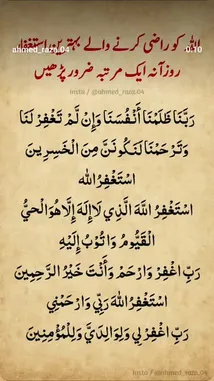 اللہ کو راضی کرنے والے بہترین استغفار
ahmed_raza.04
0:10
روزآنہ ایک مرتبہ ضرور پڑھیں
Insta / @ahmed_raza.04
رَبَّنَا ظَلَمْنَا أَنْفُسَنَا وَإِنْ لَّمْ تَغْفِرْ لَنَا
وَتَرْحَمْنَا لَنَكُونَنَّ مِنَ الْخَسِرِينَ
اَسْتَغْفِرُاللّٰه
اَسْتَغْفِرُ اللَّهَ الَّذِي لَا إِلَهَ إِلَّا هُوَ الْحَيُّ
الْقَيُّومُ وَاَتُوْبُ إِلَيْهِ
رَبِّ اغْفِرْ وَارْحَمْ وَأَنْتَ خَيْرُ الرَّحِمِينَ
اَسْتَغْفِرُ اللهَ رَبِّي وَارْحَمْنِي
رَبِّ اغْفِرْ لِي وَلِوَالِدَيَّ وَلِلْمُؤْمِنِينَ
Insta / @ahmed_raza.04